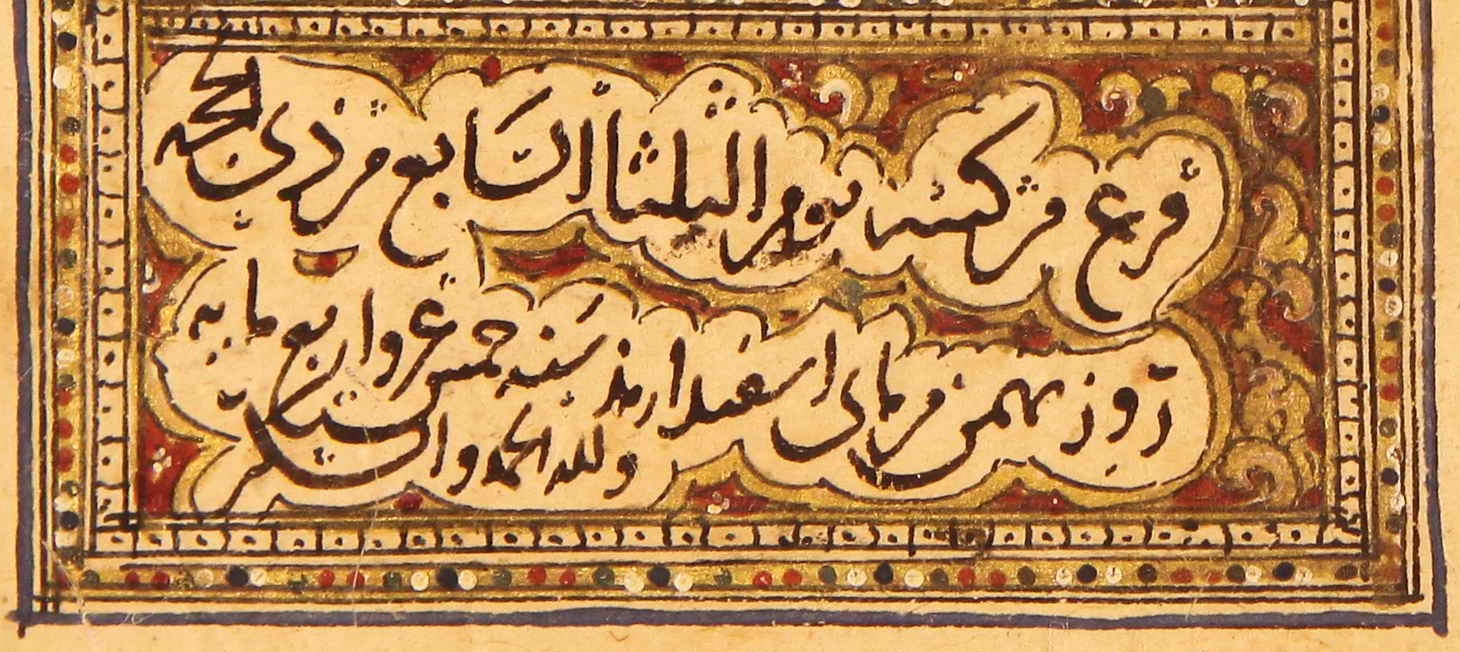 فرغ من كتبه يوم الثلثا السابع من ذى الحجه
روز بهمن من ماى اسفندارمذ سنه خمس عشر واربع مايه
ولله الحمد و